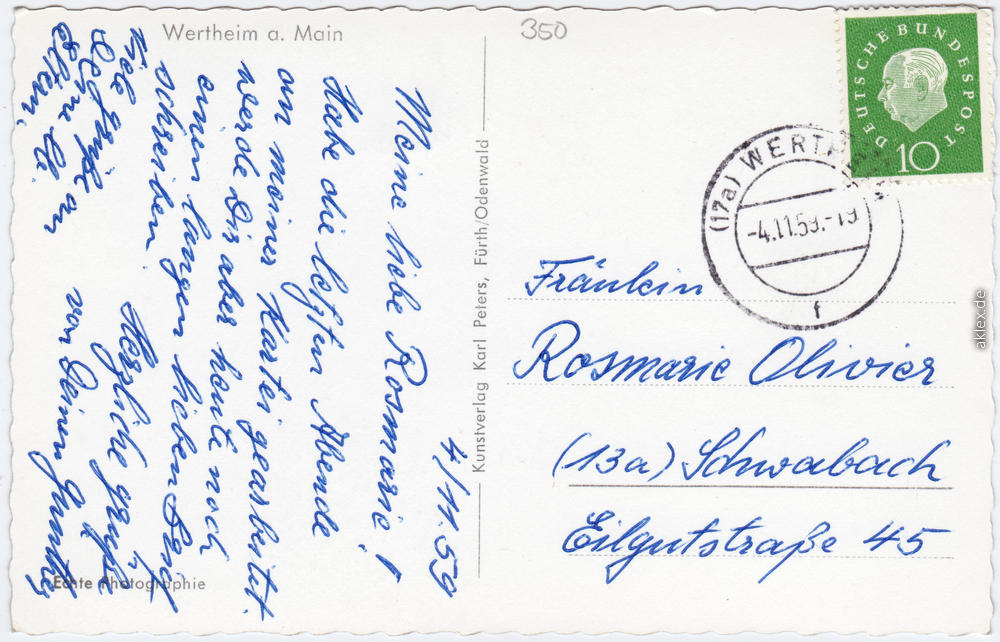 Wertheim a. Main
350
4/11.59
Meine liebe Rosmarie!
Habe die letzten Abende
an meiner Kartei gearbeitet.
werde Dir aber heute noch
einen langen lieben Brief
schreiben.
Herzliche Grüße
von Deinem Günther
Viele
liebe Grüße an
Deine lb.
Eltern.
Echte Photographie
Kunstverlag Karl Peters, Fürth/Odenwald
DEUTSCHE BUNDESPOST
10
(17a) WERTH
-4.11.59.-19
f
Fräulein
Rosmarie Olivier
(13a) Schwabach
Eilgutstraße 45
aklex.de